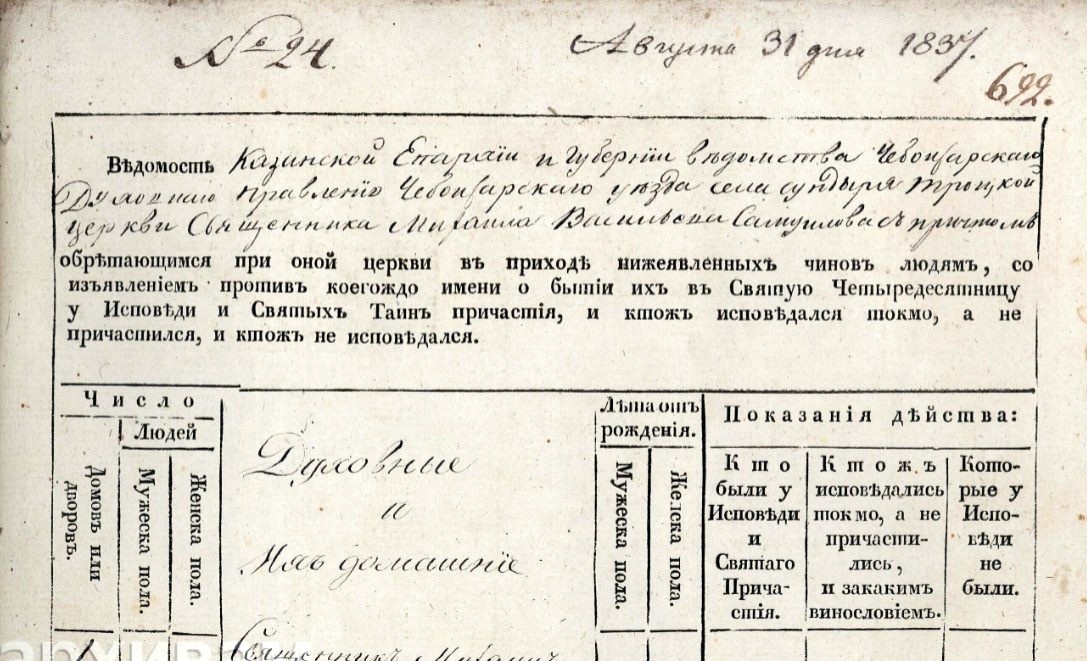 № 24.
Августа 31 дня 1837.
622.
Вѣдомость Казанской Епархіи и Губерніи вѣдомства Чебоксарскаго
Духовнаго Правленія Чебоксарскаго уѣзда села Сундыря Троицкой
церкви Священника Михаила Васильева Самуилова съ причтомъ
обрѣтающимся при оной церкви въ приходѣ нижеявленныхъ чиновъ людямъ, со
изъявленіемъ противъ коегождо имени о бытіи ихъ въ Святую Четыредесятницу
у Исповѣди и Святыхъ Таинъ причастія, и ктожъ исповѣдался токмо, а не
причастился, и ктожъ не исповѣдался.
Число
Людей
Домовъ или дворовъ.
Мужеска пола.
Женска пола.
Духовные
и
ихъ домашніе
Лѣта отъ
рожденія.
Мужеска пола.
Женска пола.
Показанія дѣйства:
Кто
были у
Исповѣди
и
Святаго
Прича-
стія.
Ктожъ
исповѣдались
токмо, а не
причасти-
лись,
и закакимъ
винословіемъ.
Кото-
рые у
Испо-
вѣди
не
были.
1
Священникъ Михаилъ
архив